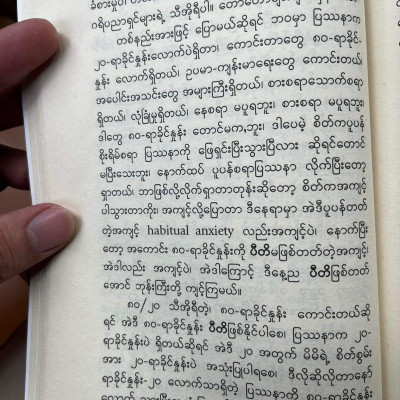 ဂရိပညာရှင်များရဲ့ သီအိုရီပါ။
တစ်နည်းအားဖြင့် ပြောမယ်ဆိုရင် ဘဝမှာ ပြဿနာက
၂၀-ရာခိုင်နှုန်းလောက်ပဲရှိတာ၊ ကောင်းတာတွေ ၈၀-ရာခိုင်-
နှုန်း လောက်ရှိတယ်၊ ဥပမာ-ကျန်းမာရေးတွေ ကောင်းတယ်၊
အပေါင်းအသင်းတွေ အများကြီးရှိတယ်၊ စားစရာသောက်စရာ
ရှိတယ်၊ လုံခြုံမှုရှိတယ်၊ နေစရာ မပူရဘူး၊ စားစရာ မပူရဘူး၊
ဒါတွေ ၈၀-ရာခိုင်နှုန်း တောင်မကဘူး၊ ဒါပေမဲ့ စိတ်ကပူပန်
စိုးရိမ်စရာ ပြဿနာကို ဖြေရှင်းပြီးသွားပြီလား ဆိုရင်တောင်
မပြီးသေးဘူး၊ နောက်ထပ် ပူပန်စရာပြဿနာ လိုက်ပြီးတော့
ရှာတယ်၊ ဘာဖြစ်လို့လိုက်ရှာတာတုန်းဆိုတော့ စိတ်ကအကျင့်
ပါသွားတာကိုး၊ အကျင့်လို့ပြောတာ ဒီနေရာမှာ အဲဒီပူပန်တတ်
တဲ့အကျင့် habitual anxiety လည်းအကျင့်ပဲ၊ နောက်ပြီး
တော့ အကောင်း ၈၀-ရာခိုင်နှုန်းကို ပီတိမဖြစ်တတ်တဲ့အကျင့်၊
အဲဒါလည်း အကျင့်ပဲ၊ အဲဒါကြောင့် ဒီနေ့ည ပီတိဖြစ်တတ်
အောင် ဘုန်းကြီးတို့ ကျင့်ကြမယ်။
၈၀/၂၀ သီအိုရီတဲ့၊ ၈၀-ရာခိုင်နှုန်း ကောင်းတယ်ဆို
ရင် အဲဒီ ၈၀-ရာခိုင်နှုန်း ပီတိဖြစ်နိုင်ပါစေ၊ ပြဿနာက ၂၀-
ရာခိုင်နှုန်းပဲ ရှိတယ်ဆိုရင် အဲဒီ ၂၀ အတွက် မိမိရဲ့ စိတ်စွမ်း
အား ၂၀-ရာခိုင်နှုန်းပဲ အသုံးပြုပါရစေ၊ ဒီလိုဆိုလိုတာနော်
ရာခိုင်နှုန်း-၂၀ လောက်သာရှိတဲ့ ပြဿနာကို ၈၀-ရာခိုင်နှုန်း